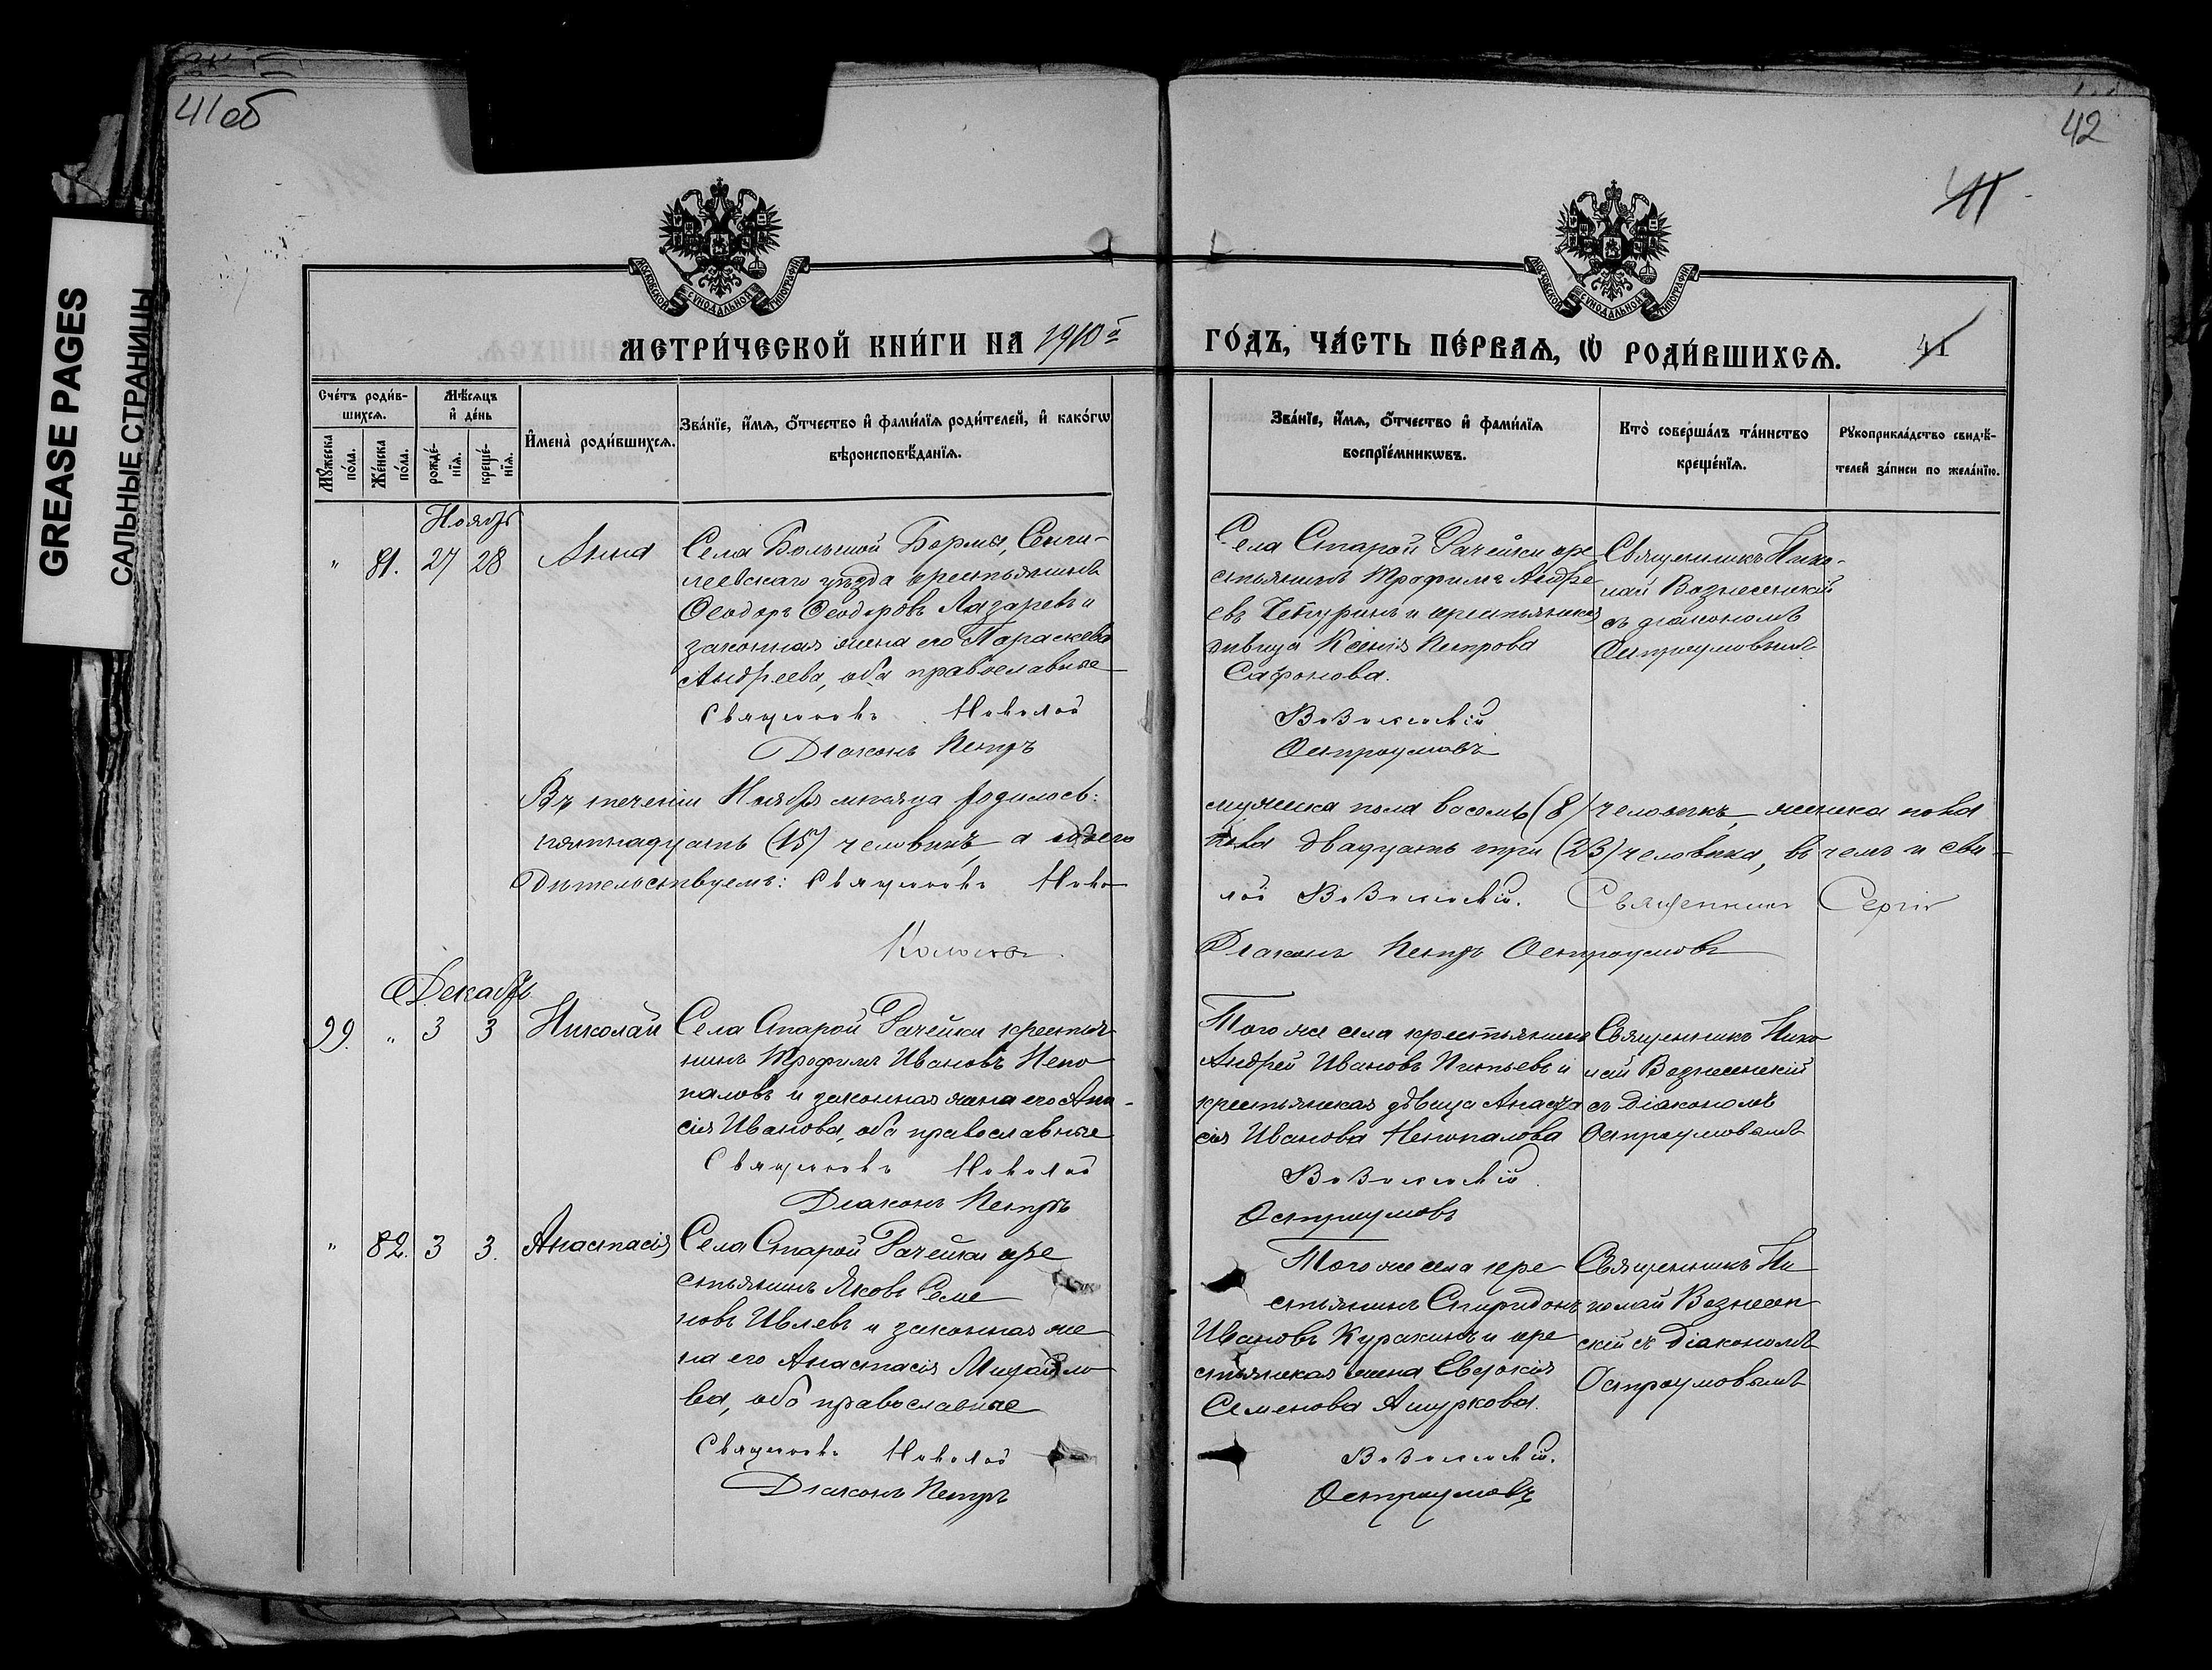 41об
42
41
GREASE PAGES
САЛЬНЫЕ СТРАНИЦЫ
МОСКОВСКОЙ СѴНОДАЛЬНОЙ ТИПОГРАФІИ
МОСКОВСКОЙ СѴНОДАЛЬНОЙ ТИПОГРАФІИ
МЕТРИ́ЧЕСКОЙ КНИ́ГИ НА 1910й
ГО́ДЪ, ЧА́СТЬ ПЕ́РВАѦ, Ѡ҆ РОДИ́ВШИХСѦ.
41
Сче́тъ роди́в-
шихсѧ.
Мꙋ́жеска по́ла.
Же́нска по́ла.
Мѣ́сѧцъ
и҆ де́нь
рожде́-
нїѧ.
креще́-
нїѧ.
И҆мена̀ роди́вшихсѧ.
Зва́нїе, и҆́мѧ, ѻ҆́тчество и҆ фами́лїѧ роди́телей, и҆ како́гѡ
вѣроисповѣ́данїѧ.
Зва́нїе, и҆́мѧ, ѻ҆́тчество и҆ фами́лїѧ
воспрїе́мникѡвъ.
Кто̀ соверша́лъ та́инство
креще́нїѧ.
Рꙋкоприкла́дство свидѣ́-
телей за́писи по жела́нїю.
Ноябрь
" 81. 27 28 Анна
Села Большой Борлы, Сенги-
леевскаго уѣзда крестьянинъ
Ѳеодоръ Ѳеодоровъ Лазаревъ и
законная жена его Параскева
Андреева, оба православные
Священникъ Николай
Діаконъ Петръ
Села Старой Рачейки кре
стьянинъ Трофимъ Андре
евъ Чекуринъ и крестьянская
дѣвица Ксенія Петрова
Сафонова.
Вознесенскій
Остроумовъ
Священникъ Нико-
лай Вознесенскій
съ діакономъ
Остроумовымъ
Въ теченіи Ноября мѣсяца родилось: мужеска пола восемь (8) человѣкъ, женска пола
пятнадцать (15) человѣкъ, а обоего пола двадцать три (23) человѣка, въ чемъ и сви-
дѣтельствуемъ: Священникъ Нико лай Вознесенскій. Священникъ Сергій
Діаконъ Петръ Остроумовъ
Декабрь
99. " 3 3 Николай
Села Старой Рачейки крестья
нинъ Трофимъ Ивановъ Непо
паловъ и законная жена его Ана-
сія Иванова, оба православные
Священникъ Николай
Діаконъ Петръ
Того же села крестьянинъ
Андрей Ивановъ Игнатьевъ и
крестьянская дѣвица Анаста
сія Иванова Непопалова
Вознесенскій
Остроумовъ
Священникъ Нико
лай Вознесенскій
съ діакономъ
Остроумовымъ
" 82. 3 3. Анастасія
Села Старой Рачейки кре
стьянинъ Яковъ Семе
новъ Ивлевъ и законная же
на его Анастасія Михайло
ва, оба православные
Священникъ Николай
Діаконъ Петръ
Того же села кре
стьянинъ Спиридонъ
Ивановъ Куракинъ и кре
стьянская жена Евдокія
Семенова Ашуркова.
Вознесенскій.
Остроумовъ
Священникъ Ни
колай Вознесен
скій съ діакономъ
Остроумовымъ